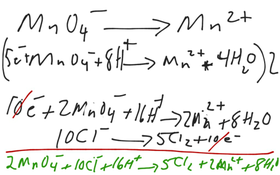 MnO₄⁻ → Mn²⁺
(5e⁻+MnO₄⁻+8H⁺ → Mn²⁺+4H₂O)2
10e⁻+2MnO₄⁻+16H⁺→2Mn²⁺+8H₂O
10Cl⁻ → 5Cl₂+10e⁻
2MnO₄⁻+10Cl⁻+16H⁺→5Cl₂+2Mn²⁺+8H₂